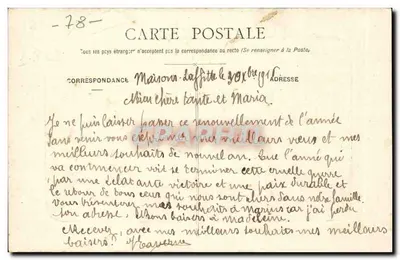 78-
CARTE POSTALE
Tous les pays étrangers n'acceptent pas la correspondance au recto (Se renseigner à la Poste.
CORRESPONDANCE Maisons-Laffitte le ADRESSE
chère tante et Maria
Je ne puis laisser passer ce renouvellement de l'année
sans venir vous mes meilleurs vœux et mes
meilleurs souhaits de nouvel an. Que l'année qui
va commencer voie se terminer cette cruelle guerre
par une éclatante victoire et une paix durable et
le retour de tous ceux qui nous sont chers dans notre famille
Vous mes souhaits à Marius car j'ai perdu
son adresse. Bons baisers à Madeleine.
Recevez, avec mes meilleurs souhaits mes meilleurs
baisers.